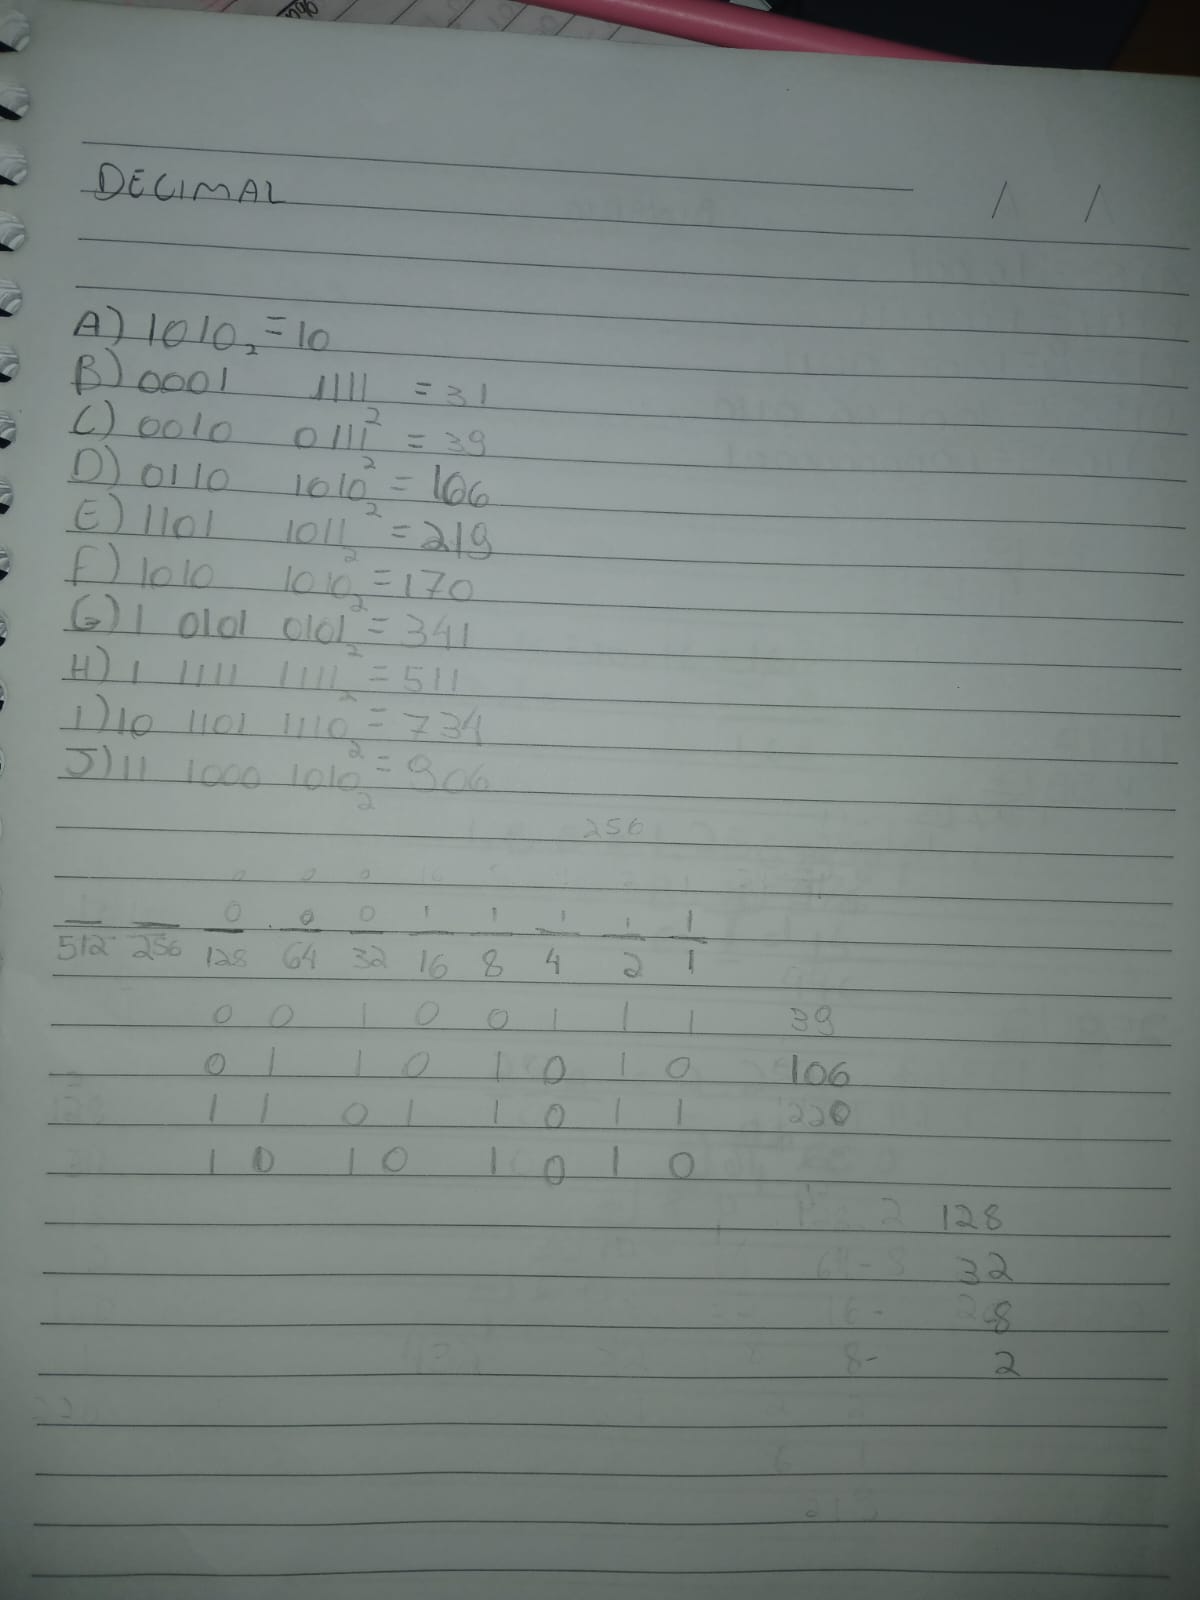 DECIMAL / /
A) 1010₂ = 10
B) 0001 1111₂ = 31
C) 0010 0111₂ = 39
D) 0110 1010₂ = 106
E) 1101 1011₂ = 219
F) 1010 1010₂ = 170
G) 1 0101 0101₂ = 341
H) 1 1111 1111₂ = 511
I) 10 1101 1110₂ = 734
J) 11 1000 1010₂ = 906
256
0 0 0 1 1 1 1 1
512 256 128 64 32 16 8 4 2 1
0 0 1 0 0 1 1 1 39
0 1 1 0 1 0 1 0 106
1 1 0 1 1 0 1 1 220
1 0 1 0 1 0 1 0
128
32
8
2